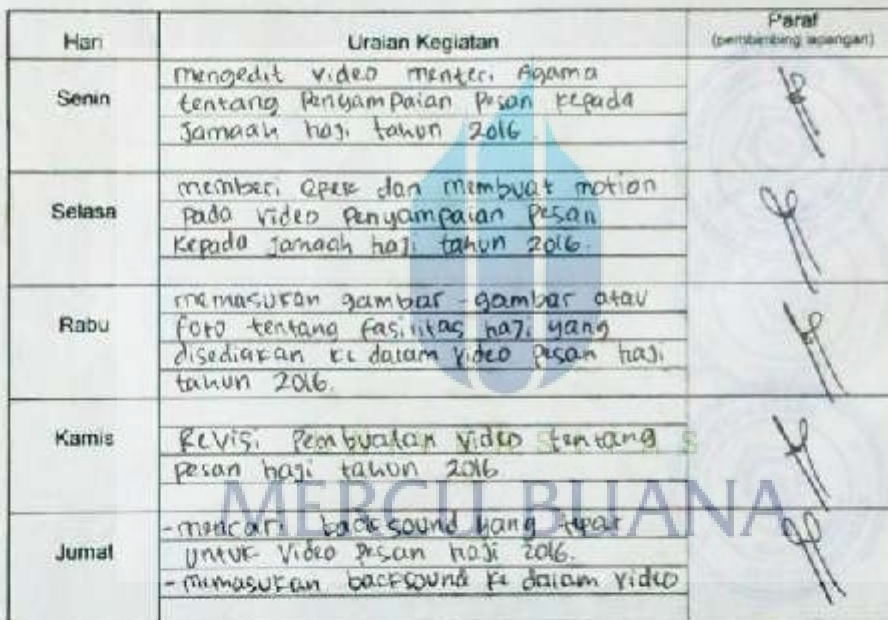 Hari Uraian Kegiatan Paraf
(pembimbing lapangan)
Senin
mengedit video menteri Agama
tentang Penyampaian pesan kepada
Jamaah haji tahun 2016.
Selasa
memberi epek dan membuat motion
pada video penyampaian pesan
kepada jamaah haji tahun 2016.
Rabu
memasukan gambar-gambar atau
foto tentang fasilitas haji yang
disediakan ke dalam video pesan haji
tahun 2016.
Kamis
Revisi Pembuatan video tentang
pesan haji tahun 2016
MERCU BUANA
Jumat
- mencari backsound yang tepat
untuk video pesan haji 2016.
- memasukan backsound ke dalam video